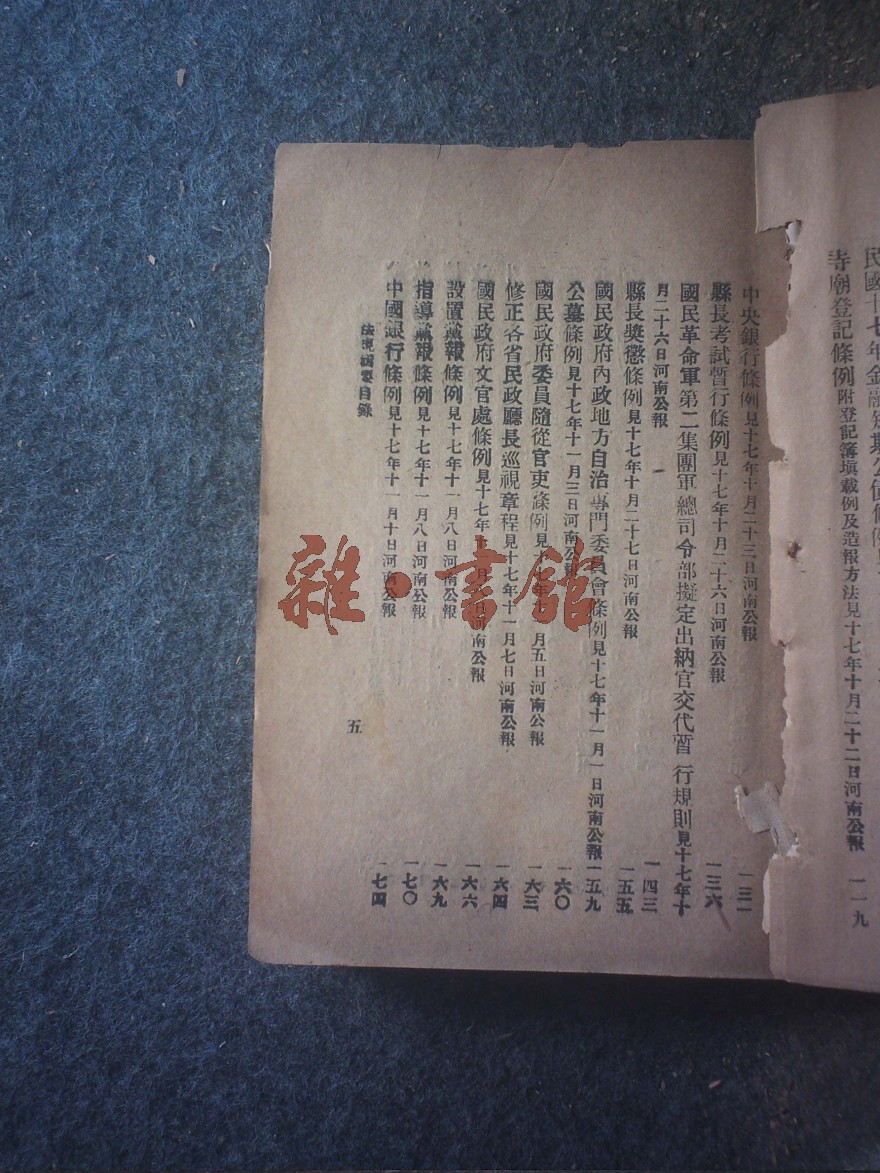 民國十七年金融短期公債條例見
寺廟登記條例附登記簿填載例及造報方法見十七年十月二十二日河南公報 一一九
中央銀行條例見十七年十月二十三日河南公報 一三一
縣長考試暫行條例見十七年十月二十六日河南公報 一三六
國民革命軍第二集團軍總司令部擬定出納官交代暫行規則見十七年十
月二十六日河南公報 一四三
縣長獎懲條例見十七年十月二十七日河南公報 一五五
國民政府內政地方自治專門委員會條例見十七年十一月一日河南公報 一五九
公墓條例見十七年十一月三日河南公報 一六〇
國民政府委員隨從官吏條例見十七年十一月五日河南公報 一六三
修正各省民政廳長巡視章程見十七年十一月七日河南公報 一六四
國民政府文官處條例見十七年十一月八日河南公報 一六六
設置黨報條例見十七年十一月八日河南公報 一六九
指導黨報條例見十七年十一月八日河南公報 一七〇
中國銀行條例見十七年十一月十日河南公報 一七四
法規輯要目錄
五
雜·書館